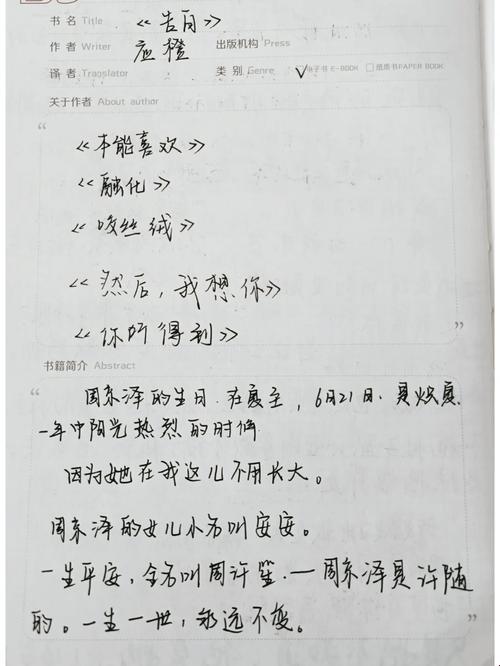 书 名 Title 《告白》
作 者 Writer 应橙 出版机构 Press
译 者 Translator 类 别 Genre ✓电子书 E-BOOK □纸质书PAPER BOOK
关于作者 About author
“
《本能喜欢》
《融化》
《咬丝绒》
《然后，我想你》
《你听得到》
”
书籍简介 Abstract
“
周京泽的生日.在夏至，6月21日.是炽夏
一年中阳光热烈的时候
因为她在我这儿不用长大。
周京泽的女儿小名叫安安。
一生平安，全名叫周许笙.一周京泽是许随
的。一生一世，永远不变。
”